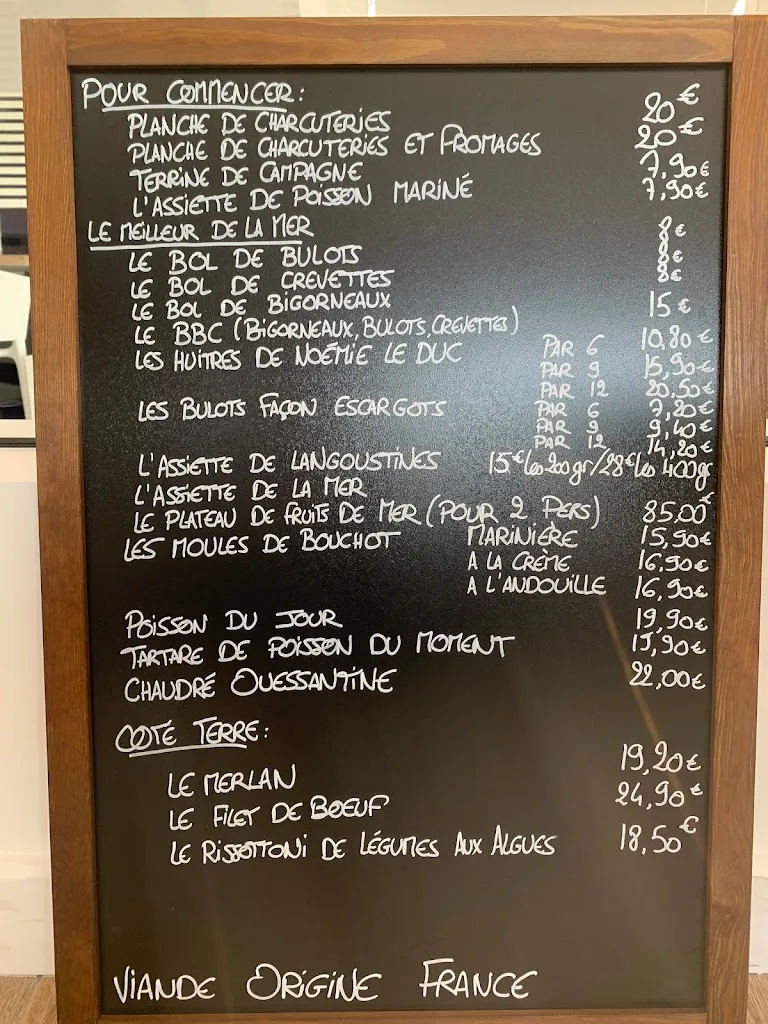 POUR COMMENCER:
PLANCHE DE CHARCUTERIES 20€
PLANCHE DE CHARCUTERIES ET FROMAGES 20€
TERRINE DE CAMPAGNE 7,90€
L'ASSIETTE DE POISSON MARINÉ 7,90€
LE MEILLEUR DE LA MER
LE BOL DE BULOTS 8€
LE BOL DE CREVETTES 8€
LE BOL DE BIGORNEAUX 8€
LE BBC (BIGORNEAUX, BULOTS, CREVETTES) 15€
LES HUITRES DE NOÉMIE LE DUC PAR 6 10,80€
PAR 9 15,90€
PAR 12 20,50€
LES BULOTS FAÇON ESCARGOTS PAR 6 7,20€
PAR 9 9,40€
PAR 12 14,20€
L'ASSIETTE DE LANGOUSTINES 15€ les 200gr/28€ les 400gr
L'ASSIETTE DE LA MER
LE PLATEAU DE FRUITS DE MER (POUR 2 PERS) 85,00€
LES MOULES DE BOUCHOT MARINIÈRE 15,90€
A LA CRÈME 16,90€
A L'ANDOUILLE 16,90€
POISSON DU JOUR 19,90€
TARTARE DE POISSON DU MOMENT 15,90€
CHAUDRÉ OUESSANTINE 22,00€
COTÉ TERRE:
LE MERLAN 19,20€
LE FILET DE BOEUF 24,90€
LE RISSOTTONI DE LÉGUMES AUX ALGUES 18,50€
VIANDE ORIGINE FRANCE